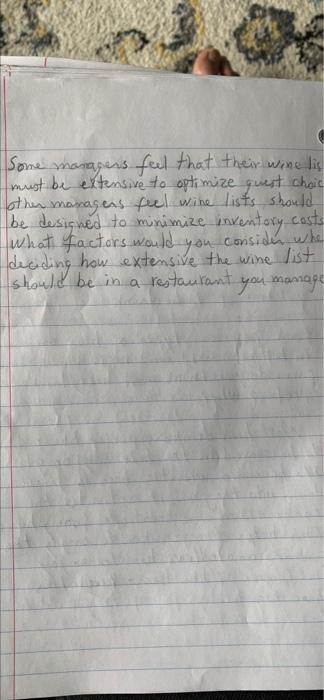 Some managers feel that their wine lis
must be extensive to optimize guest choic
other managers feel wine lists should
be designed to minimize inventory costs
What factors would you consider whe
deciding how extensive the wine list
should be in a restaurant you manage